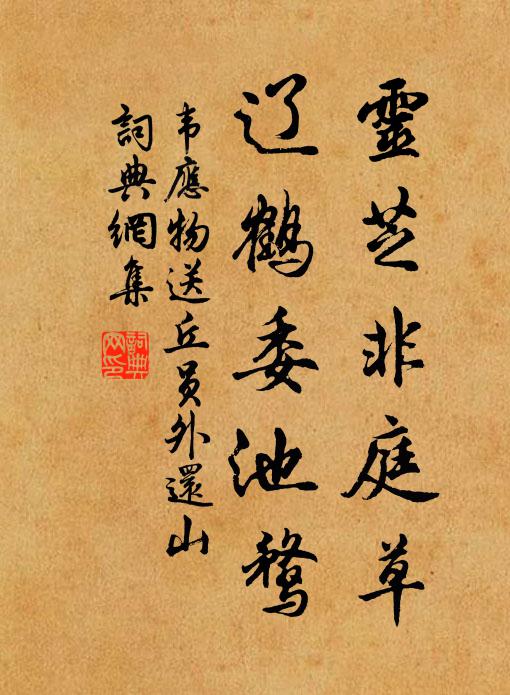 靈芝非庭草
辽鶴委池鶩
韦應物送丘员外還山
詞典網集
詞典网印